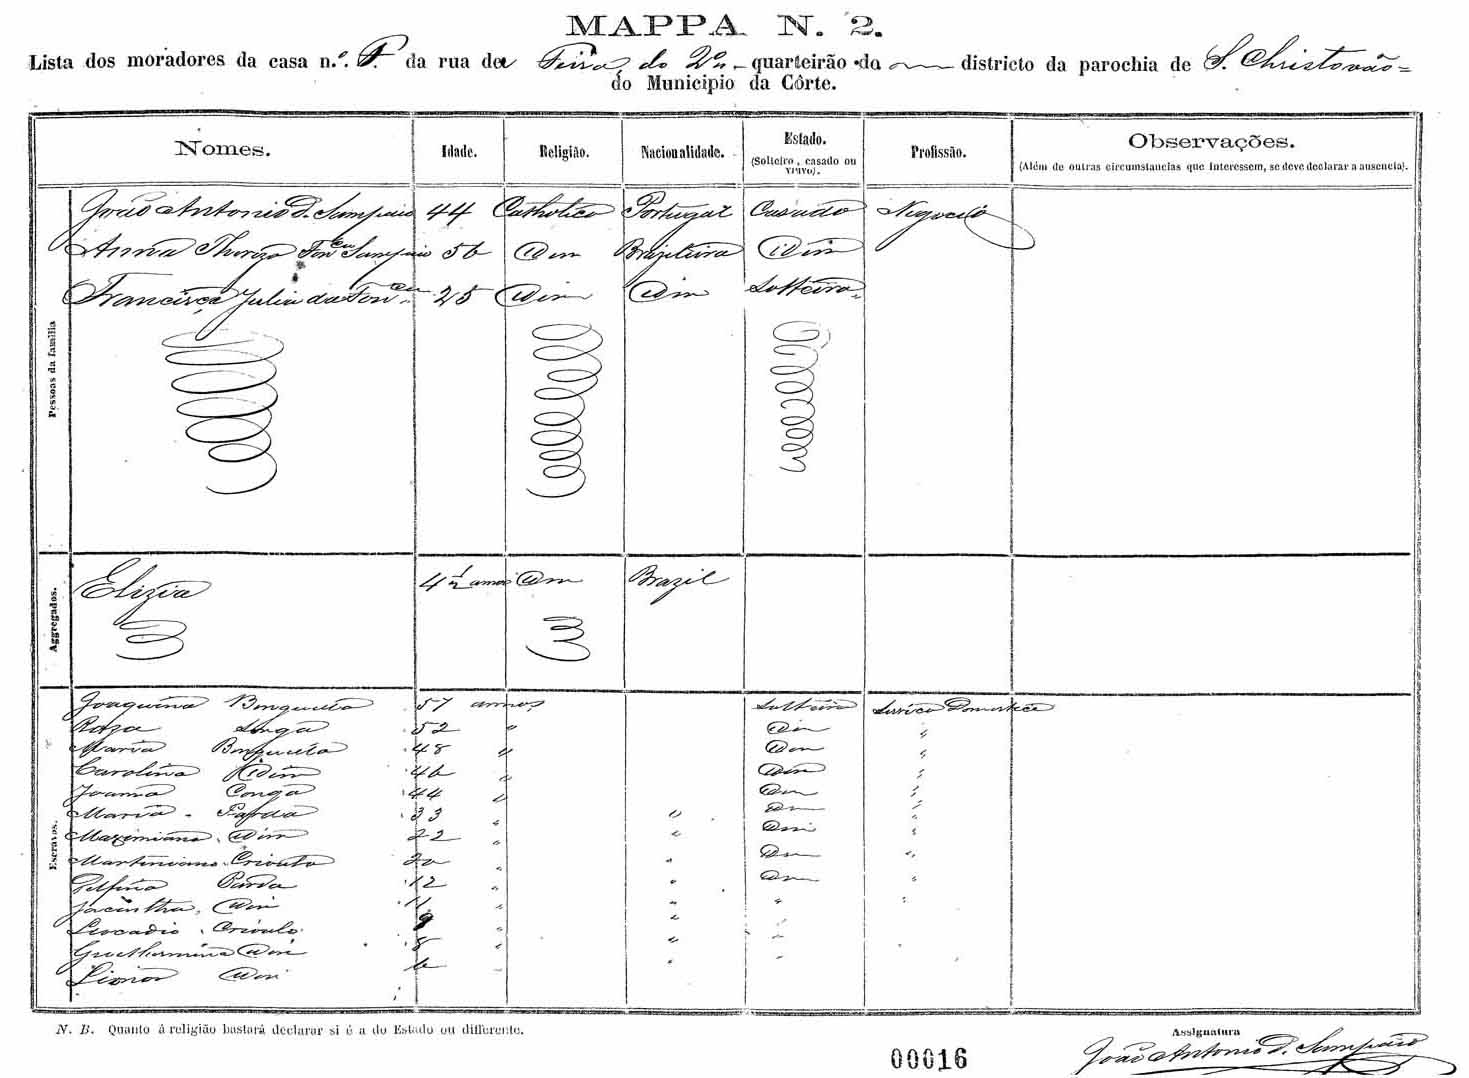 MAPPA N. 2.
Lista dos moradores da casa n.º da rua da Feira, do 2º quarteirão do districto da parochia de S. Christovão
do Municipio da Côrte.
Nomes. Idade. Religião. Nacionalidade. Estado. (Solteiro, casado ou viuvo). Profissão. Observações. (Além de outras circumstancias que interessem, se deve declarar a ausencia).
Pessoas da familia
João Antonio d. Sampaio 44 Catholico Portugal Casado Negocio
Anna Thereza Fonca Sampaio 56 Idem Brazileira Idem
Francisca Julia da Fonca 25 Idem Idem Solteira
Aggregados.
Elizia 4 1/2 annos Idm Brazil
Escravos.
Joaquina Benguella 57 annos Solteira Serviço Domestico
Roza 52 " Idm "
Maria Benguella 48 " Idm "
Carolina Idim 46 " Idm "
Joanna Conga 44 " Idm "
Maria Parda 33 " " Idm "
Maximiano Idim 22 " " Idm "
Martiniano Crioulo 20 " " Idm "
Delfina Parda 12 " " Idm "
Jacintha Idim 11 " " " "
Leocadio Crioulo 9 " " "
Guilhermina Idim 8 " " "
Lionor Idim 6 " " "
N. B. Quanto á religião bastará declarar si é a do Estado ou differente.
Assignatura
João Antonio d. Sampaio
00016